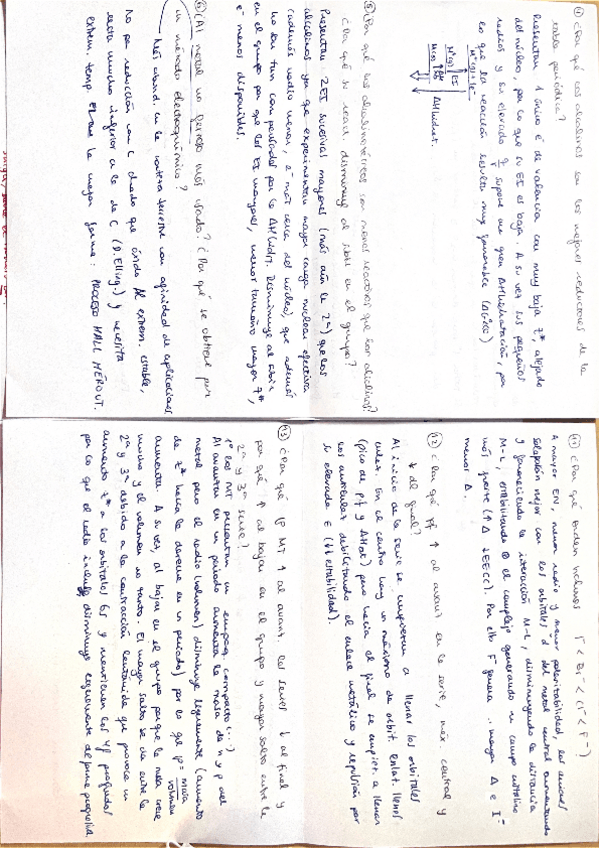 ④ ¿Por qué los alcalinos son los mejores reductores de la
tabla periódica?
Presentan 1 único e⁻ de valencia con muy baja Z*, alejado
del núcleo, por lo que su EI es baja. A su vez sus pequeños
radios y su elevado supone una gran ΔHhidratación, por
lo que la reacción resulta muy favorable (ΔG<<0)
M⁺(g) + 1e⁻
M(g) EI
ΔHhidrat.
⑤ ¿Por qué los alcalinotérreos son menos reactivos que los alcalinos?
¿Por qué su react. disminuye al subir en el grupo?
Presentan 2EI sucesivas mayores (más aún la 2ª) que los
alcalinos ya que experimentan mayor carga nuclear efectiva
(además radio menor, e⁻ más cerca del núcleo), que además
no son tan compensadas por la ΔHhidrat. Disminuye al subir
en el grupo por que las EI mayores, menor tamaño mayor Z*,
e⁻ menos disponibles.
⑥ ¿Al metal no férreo más usado? ¿Por qué se obtiene por
un método electroquímico?
Más abund. en la corteza terrestre con infinidad de aplicaciones
No por reducción con C dado que óxido Al extrem. estable,
recta mucho inferior a la de C (D. Elling.) y necesita
extrem. temp. la mejor forma: PROCESO HALL HEROULT.
⑪ ¿Por qué orden haluros I⁻ < Br⁻ < Cl⁻ < F⁻)
A mayor EN, menor radio y menor polarizabilidad, los aniones
solapan mejor con los orbitales d del metal central aumentando
y favoreciendo la interacción M-L, disminuyendo la distancia
M-L, estabilizando el complejo generando un campo cristalino
más fuerte (↑Δ ↓EECC). Por ello F⁻ genera mayor Δ e I⁻
menos Δ.
⑫ ¿Por qué Pf ↑ al avanz en la serie, máx central y
↓ al final?
Al inicio de la serie se empiezan a llenar los orbitales
enlaz. En el centro hay un máximo de orbit. enlaz. llenos
(pico de pf y ΔHat) pero hacia el final se empiez. a llenar
los antienlaz. debilitando el enlace metálico y repulsión por
su elevada E (↓↓ estabilidad).
⑬ ¿Por qué ρ MT ↑ al avanz. las series ↓ al final y
por qué ↑ al bajar en el grupo y mayor salto entre la
2ª y 3ª serie?
1º los MT presentan un empaq. compacto (...)
Al avanzar en un periodo aumenta la masa de n y p del
metal pero el radio (volumen) disminuye ligeramente (aumento
de Z* hacia la derecha en un periodo) por lo que ρ = masa/volumen
aumenta. A su vez, al bajar en el grupo porque la masa crece
mucho y el volumen no tanto. El mayor salto se da entre la
2ª y 3ª debido a la contracción lantánida que provoca un
aumento Z* a los orbitales 6s y mantienen los 4f profundos
por lo que el radio incluso disminuye